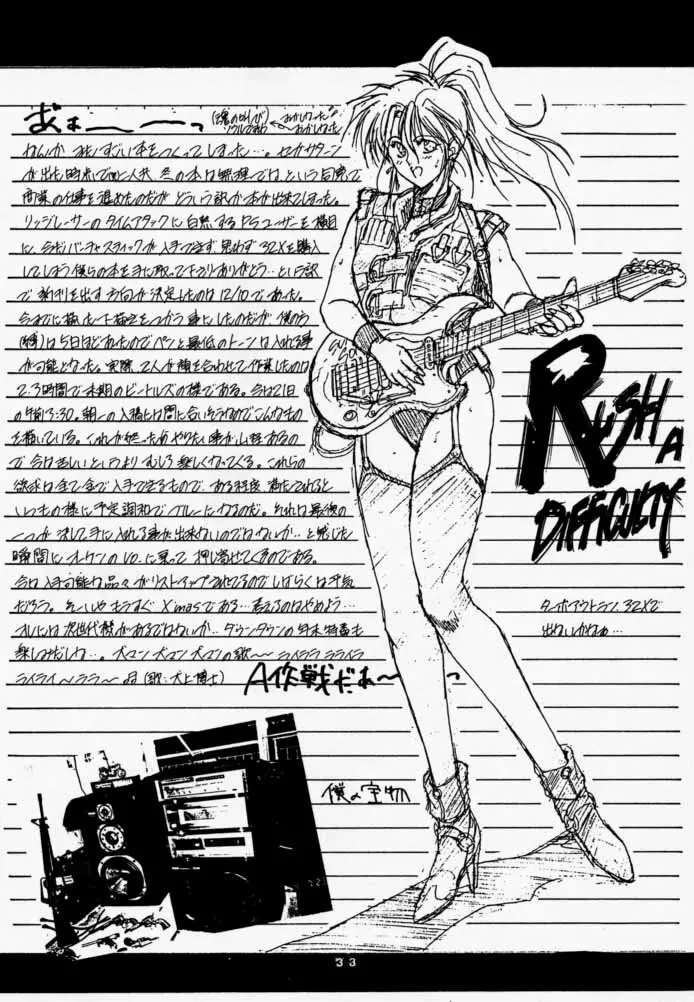 (魂の叫び)
なんかものすごい本をつくってしまった…。セガサターン
が出た時点で 冬の本は無理では、という目算で
商業の仕事を進めたのだがどういう訳か本が出来てしまった。
リッジレーサーのタイムアタックに白熱するPSユーザーを横目
に、バーチャスティックが入手出来ず 思わず32Xを購入
してしまう僕らの本を手に取って下さりありがとう…という訳
で新刊を出す方向が決定したのは12/10であった。
RUSH A
DIFFICULTY
は5日ほどあったのでペンと最低のトーンは入れる事
が可能となった。実際、2人が顔を合わせて作業したのは
2.3時間で末期のビートルズの様である。今は21日
の午前3:30。朝一の入稿には間に合いそうなのでこんなもの
を描いている。これが終ったらやりたい事が山程あるの
で今は苦しいというよりむしろ楽しくなってくる。これらの
欲求は全て金で入手できるもので、ある程度満たされると
いつもの様に予定調和でブルーになるのだ。それは最後の
一つが決して手に入れる事が出来ないのではないか…と感じた
瞬間に 乗って押し寄せてくるのである。
今は入手可能な品々がリストアップされてるのでしばらくは平気
だろう。そーいやもうすぐXmasである…考えるのはやめよう…
オレには次世代機があるではないか…ダウンタウンの年末特番も
楽しみだしね…。犬マン 犬マン 犬マンの歌〜 ライララ ラライラ
ライライ〜ララ〜 (歌:犬上博士)
A作戦だぁ〜っ
ターボアウトラン、32Xで
出ないかなぁ…
僕の宝物
33